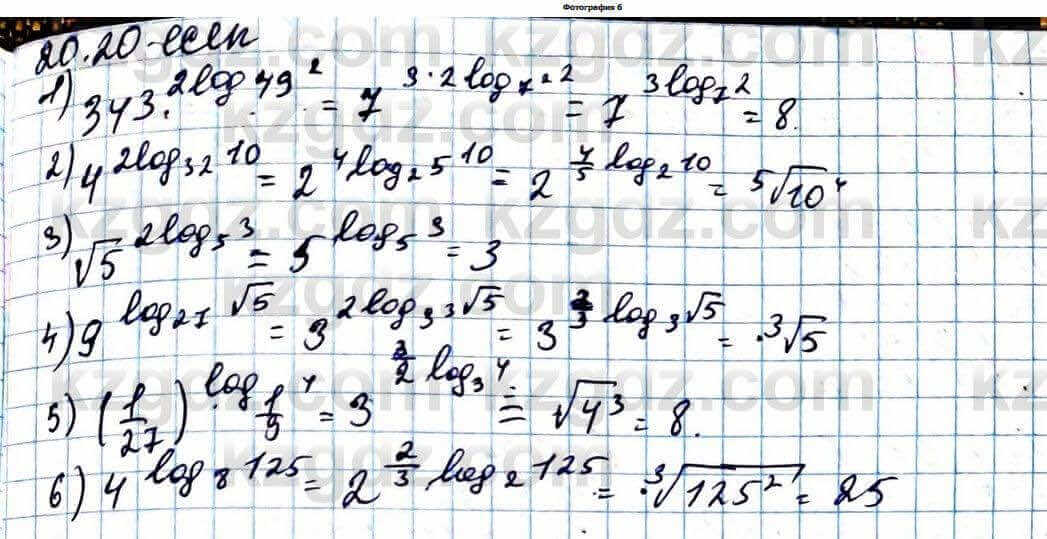 Фотография 6
20.20-есеп
1) 343^{2log_{49} 2} = 7^{3·2log_{7^2} 2} = 7^{3log_7 2} = 8.
2) 4^{2log_{32} 10} = 2^{4log_{2^5} 10} = 2^{\frac{4}{5} log_2 10} = \sqrt[5]{10^4}
3) \sqrt{5}^{2log_5 3} = 5^{log_5 3} = 3
4) 9^{log_{27} \sqrt{5}} = 3^{2log_{3^3} \sqrt{5}} = 3^{\frac{2}{3} log_3 \sqrt{5}} = \sqrt[3]{5}
5) (\frac{1}{27})^{log_{\frac{1}{9}} 4} = 3^{\frac{3}{2} log_3 4} = \sqrt{4^3} = 8.
6) 4^{log_8 125} = 2^{\frac{2}{3} log_2 125} = \sqrt[3]{125^2} = 25
kzgdz.com